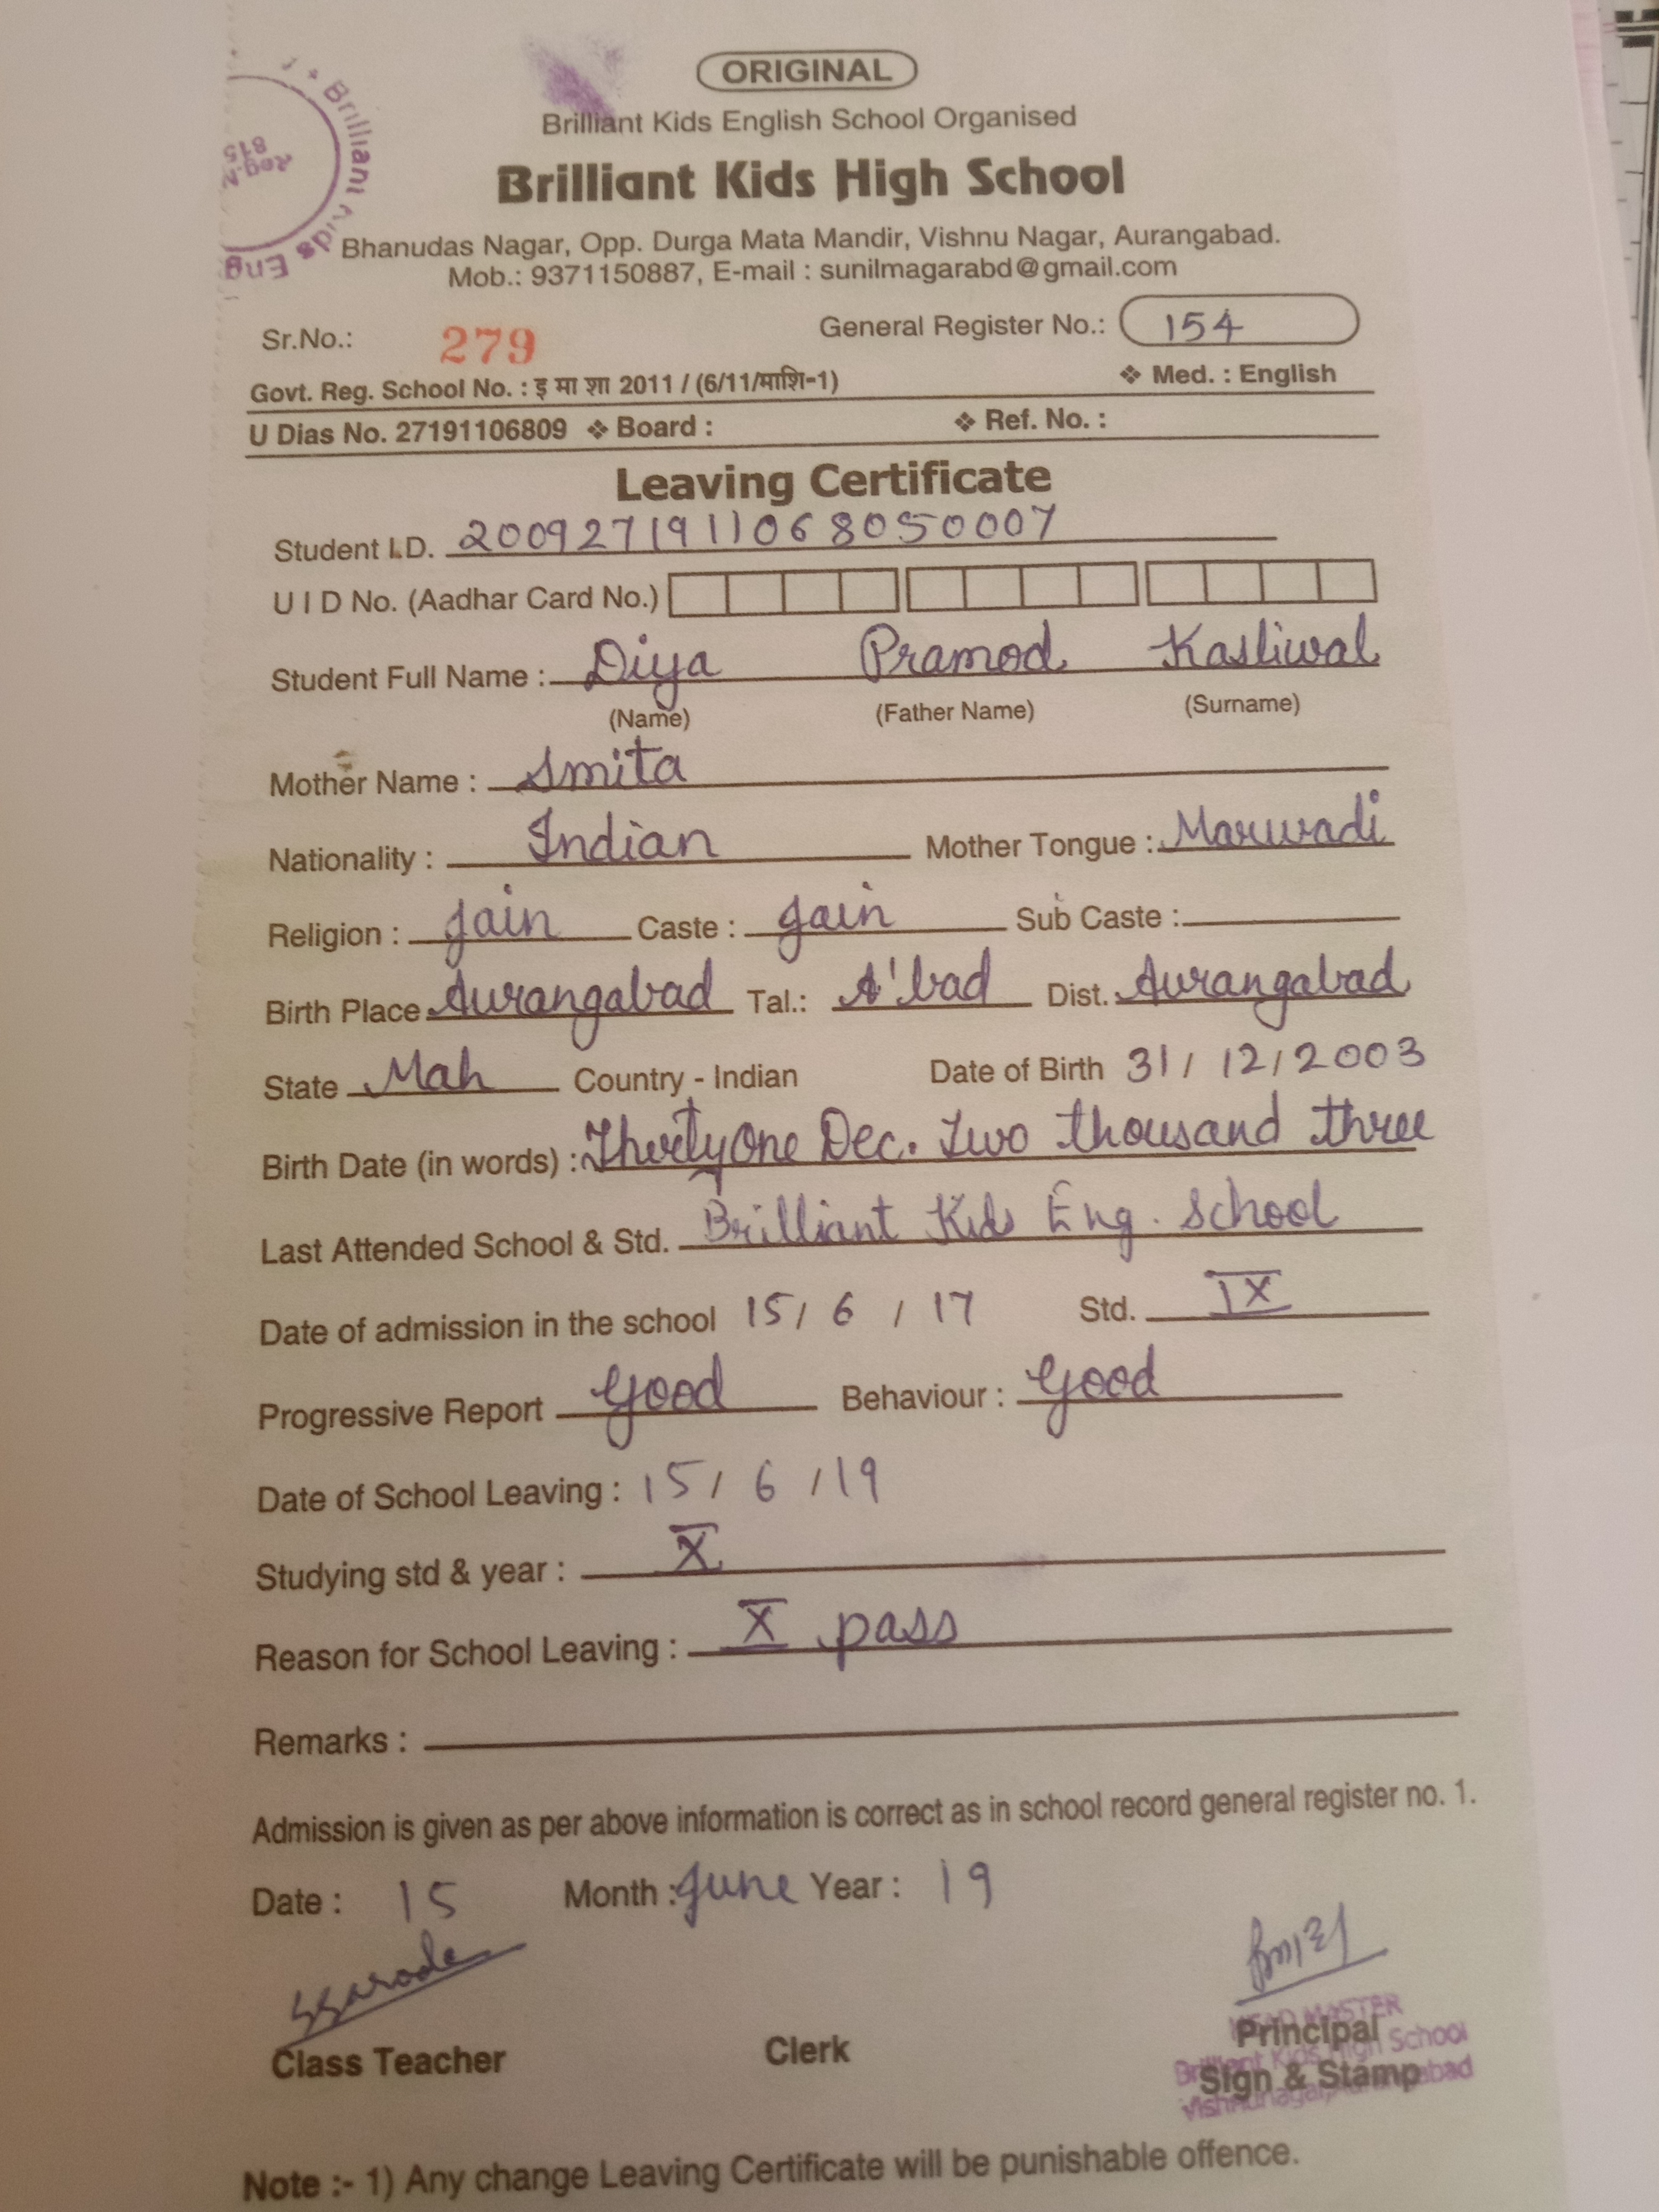 ORIGINAL
Brilliant Kids English School Organised
Brilliant Kids High School
Bhanudas Nagar, Opp. Durga Mata Mandir, Vishnu Nagar, Aurangabad.
Mob.: 9371150887, E-mail : sunilmagarabd@gmail.com
Brilliant Kids Eng
Reg.N
815
Sr.No.: 279 General Register No.: 154
Govt. Reg. School No. : इ मा शा 2011 / (6/11/माशि-1) ❖ Med. : English
U Dias No. 27191106809 ❖ Board : ❖ Ref. No. :
Leaving Certificate
Student I.D. 2009271911068050007
U I D No. (Aadhar Card No.)
Student Full Name : Diya Pramod Kasliwal
(Name) (Father Name) (Surname)
Mother Name : Smita
Nationality : Indian Mother Tongue : Marwadi
Religion : Jain Caste : Jain Sub Caste :
Birth Place Aurangabad Tal.: A'bad Dist. Aurangabad
State Mah Country - Indian Date of Birth 31/ 12/2003
Birth Date (in words) : ThirtyOne Dec. Two thousand three
Last Attended School & Std. Brilliant Kids Eng. School
Date of admission in the school 15/ 6 / 17 Std. IX
Progressive Report Good Behaviour : Good
Date of School Leaving : 15/ 6 /19
Studying std & year : X
Reason for School Leaving : X pass
Remarks :
Admission is given as per above information is correct as in school record general register no. 1.
Date : 15 Month : June Year : 19
Class Teacher Clerk Principal
Sign & Stamp
HEAD MASTER
Brilliant Kids High School
Note :- 1) Any change Leaving Certificate will be punishable offence.